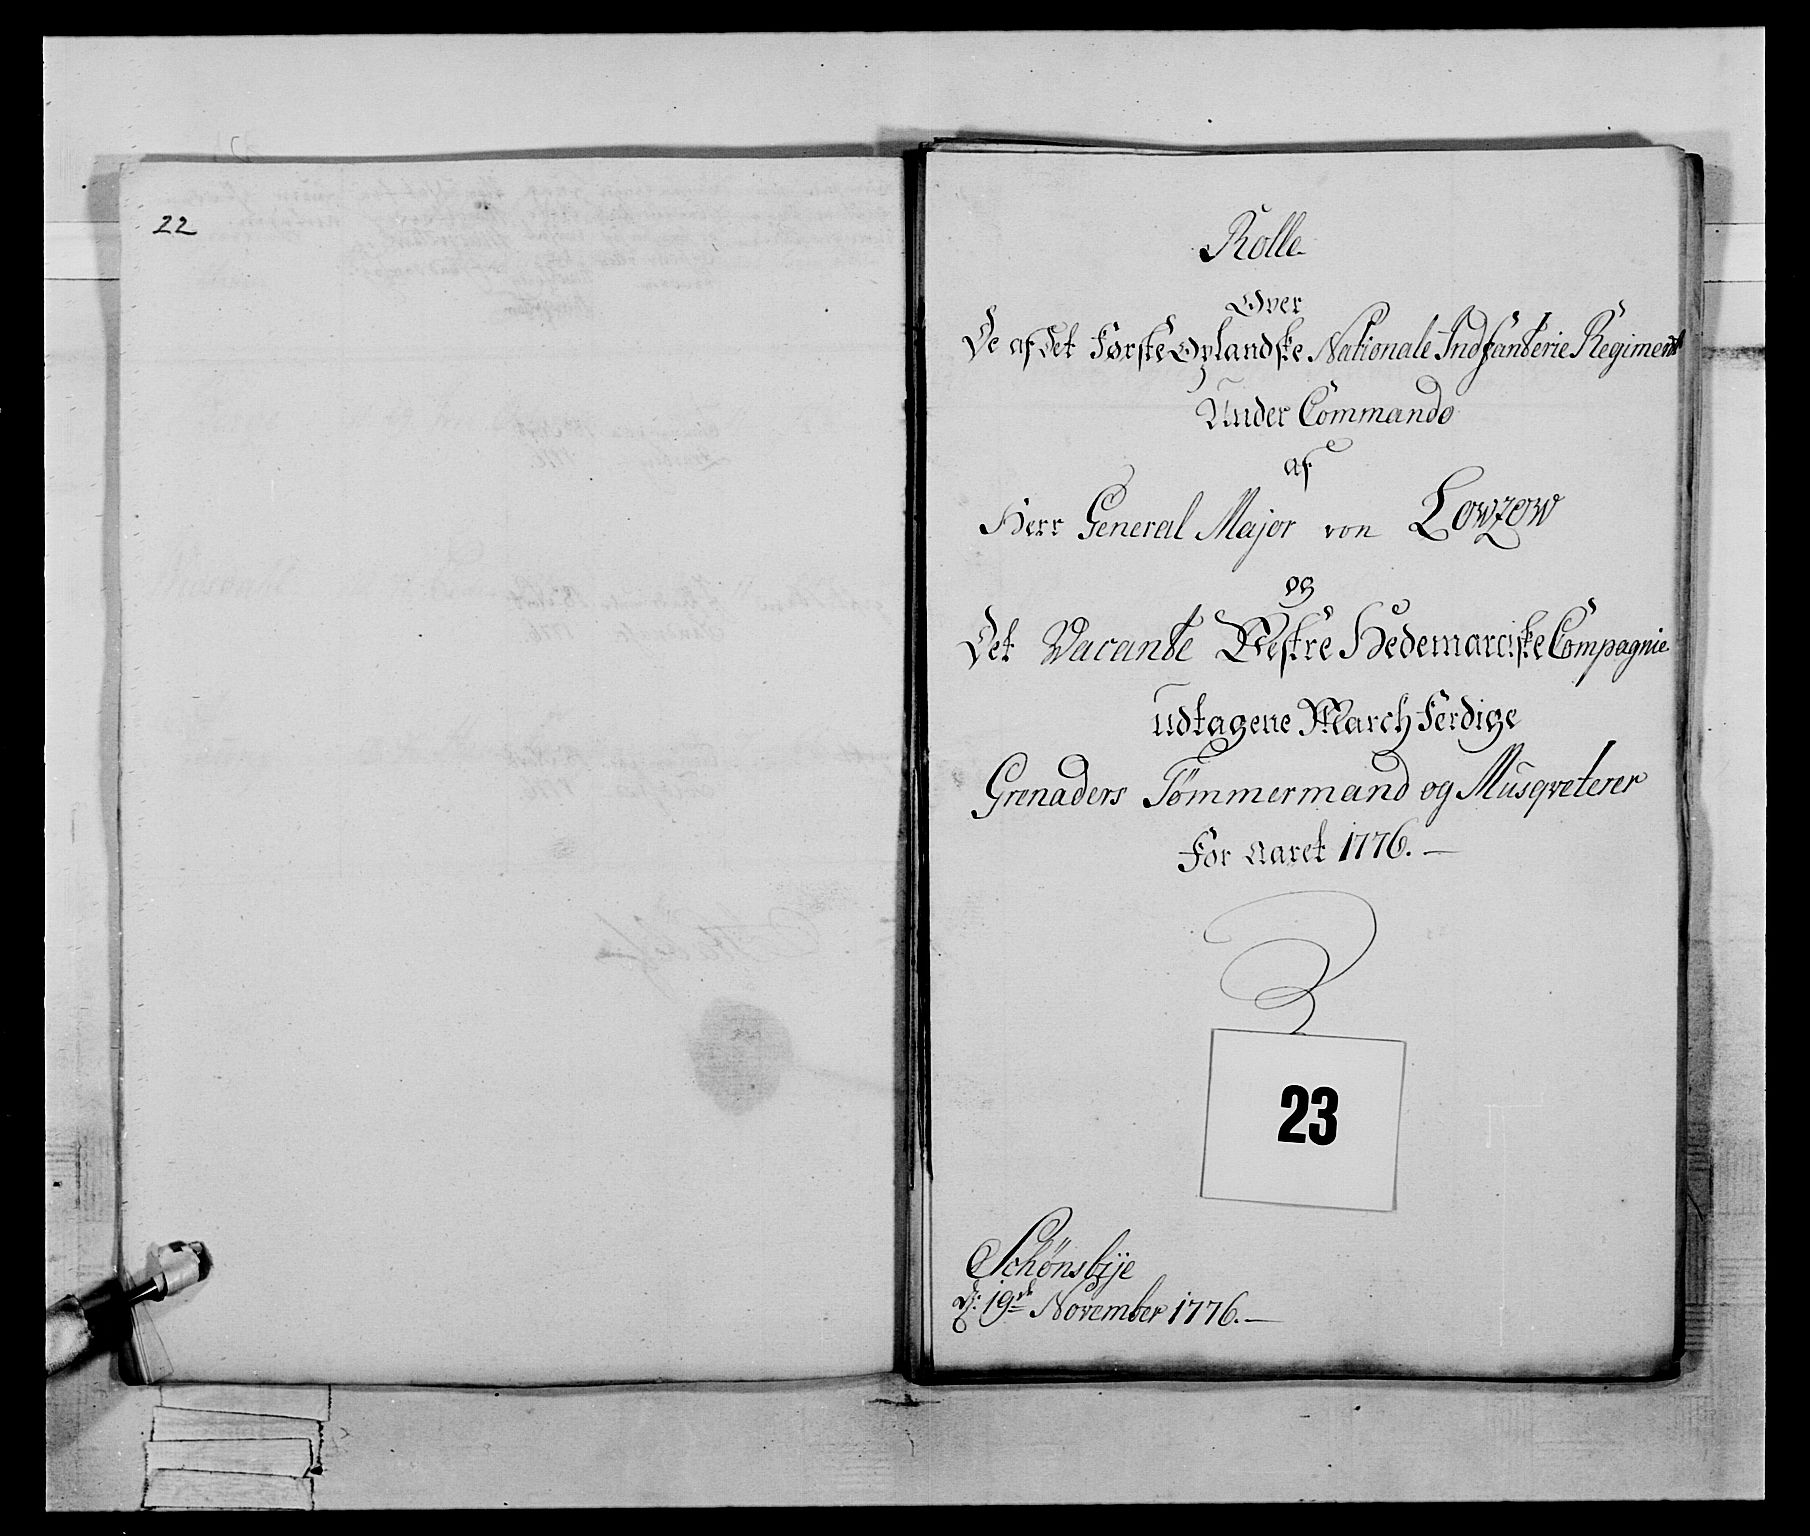 22
Rolle
Over
De af det Første Oplandske Nationale Indfanterie Regiment
Under Commando
af
Herr General Major von Lowzow
og
Det Vacante Westre Hedemarciske Compagnie
udtagene March Ferdige
Grenaders Tømmermand og Musqveterer
For Aaret 1776.
23
Schønsbÿe
d: 19de November 1776.